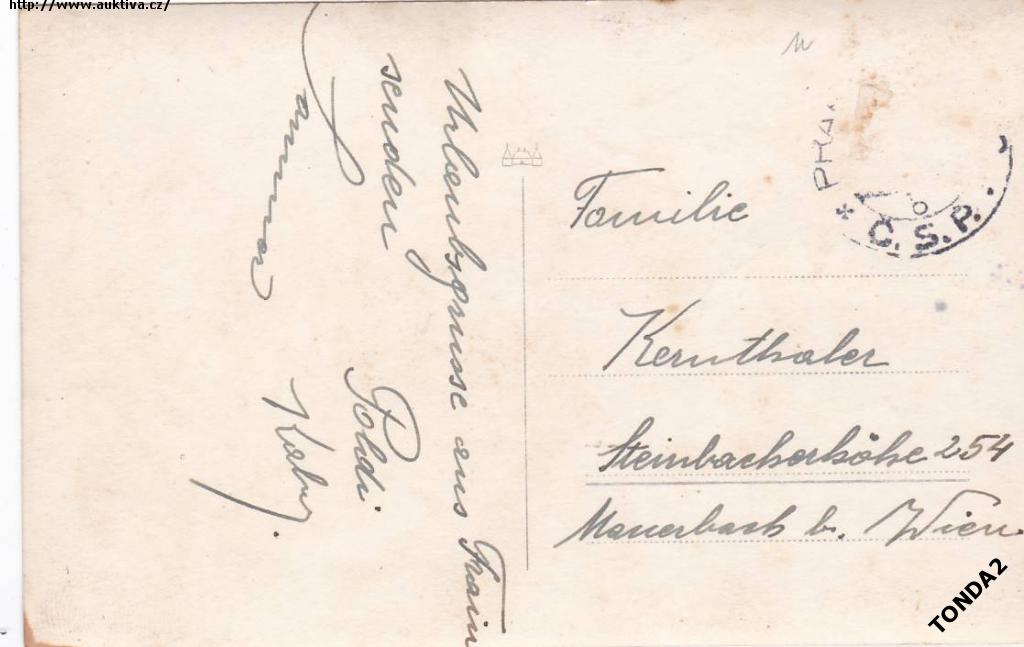 http://www.auktiva.cz/
Urlaubsgrüsse aus Frain
senden Poldi
Familie
Kernthaler
Steinbacherhöhe 254
Mauerbach b. Wien.
Č.S.P.
TONDA2